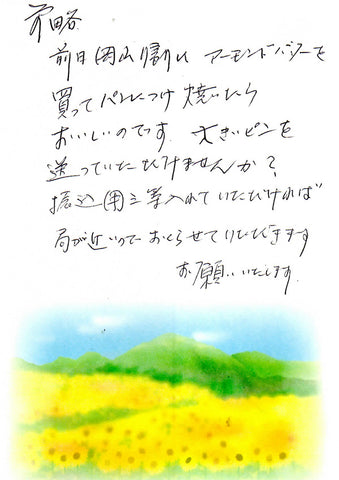 前略
前日岡山帰りに アーモンドバターを
買ってパンにつけ 焼いたら
おいしいのです。大きいビンを
送っていただけませんか?
振込用 入れていただければ
局が近いので おくらせていただきます
お願いいたします